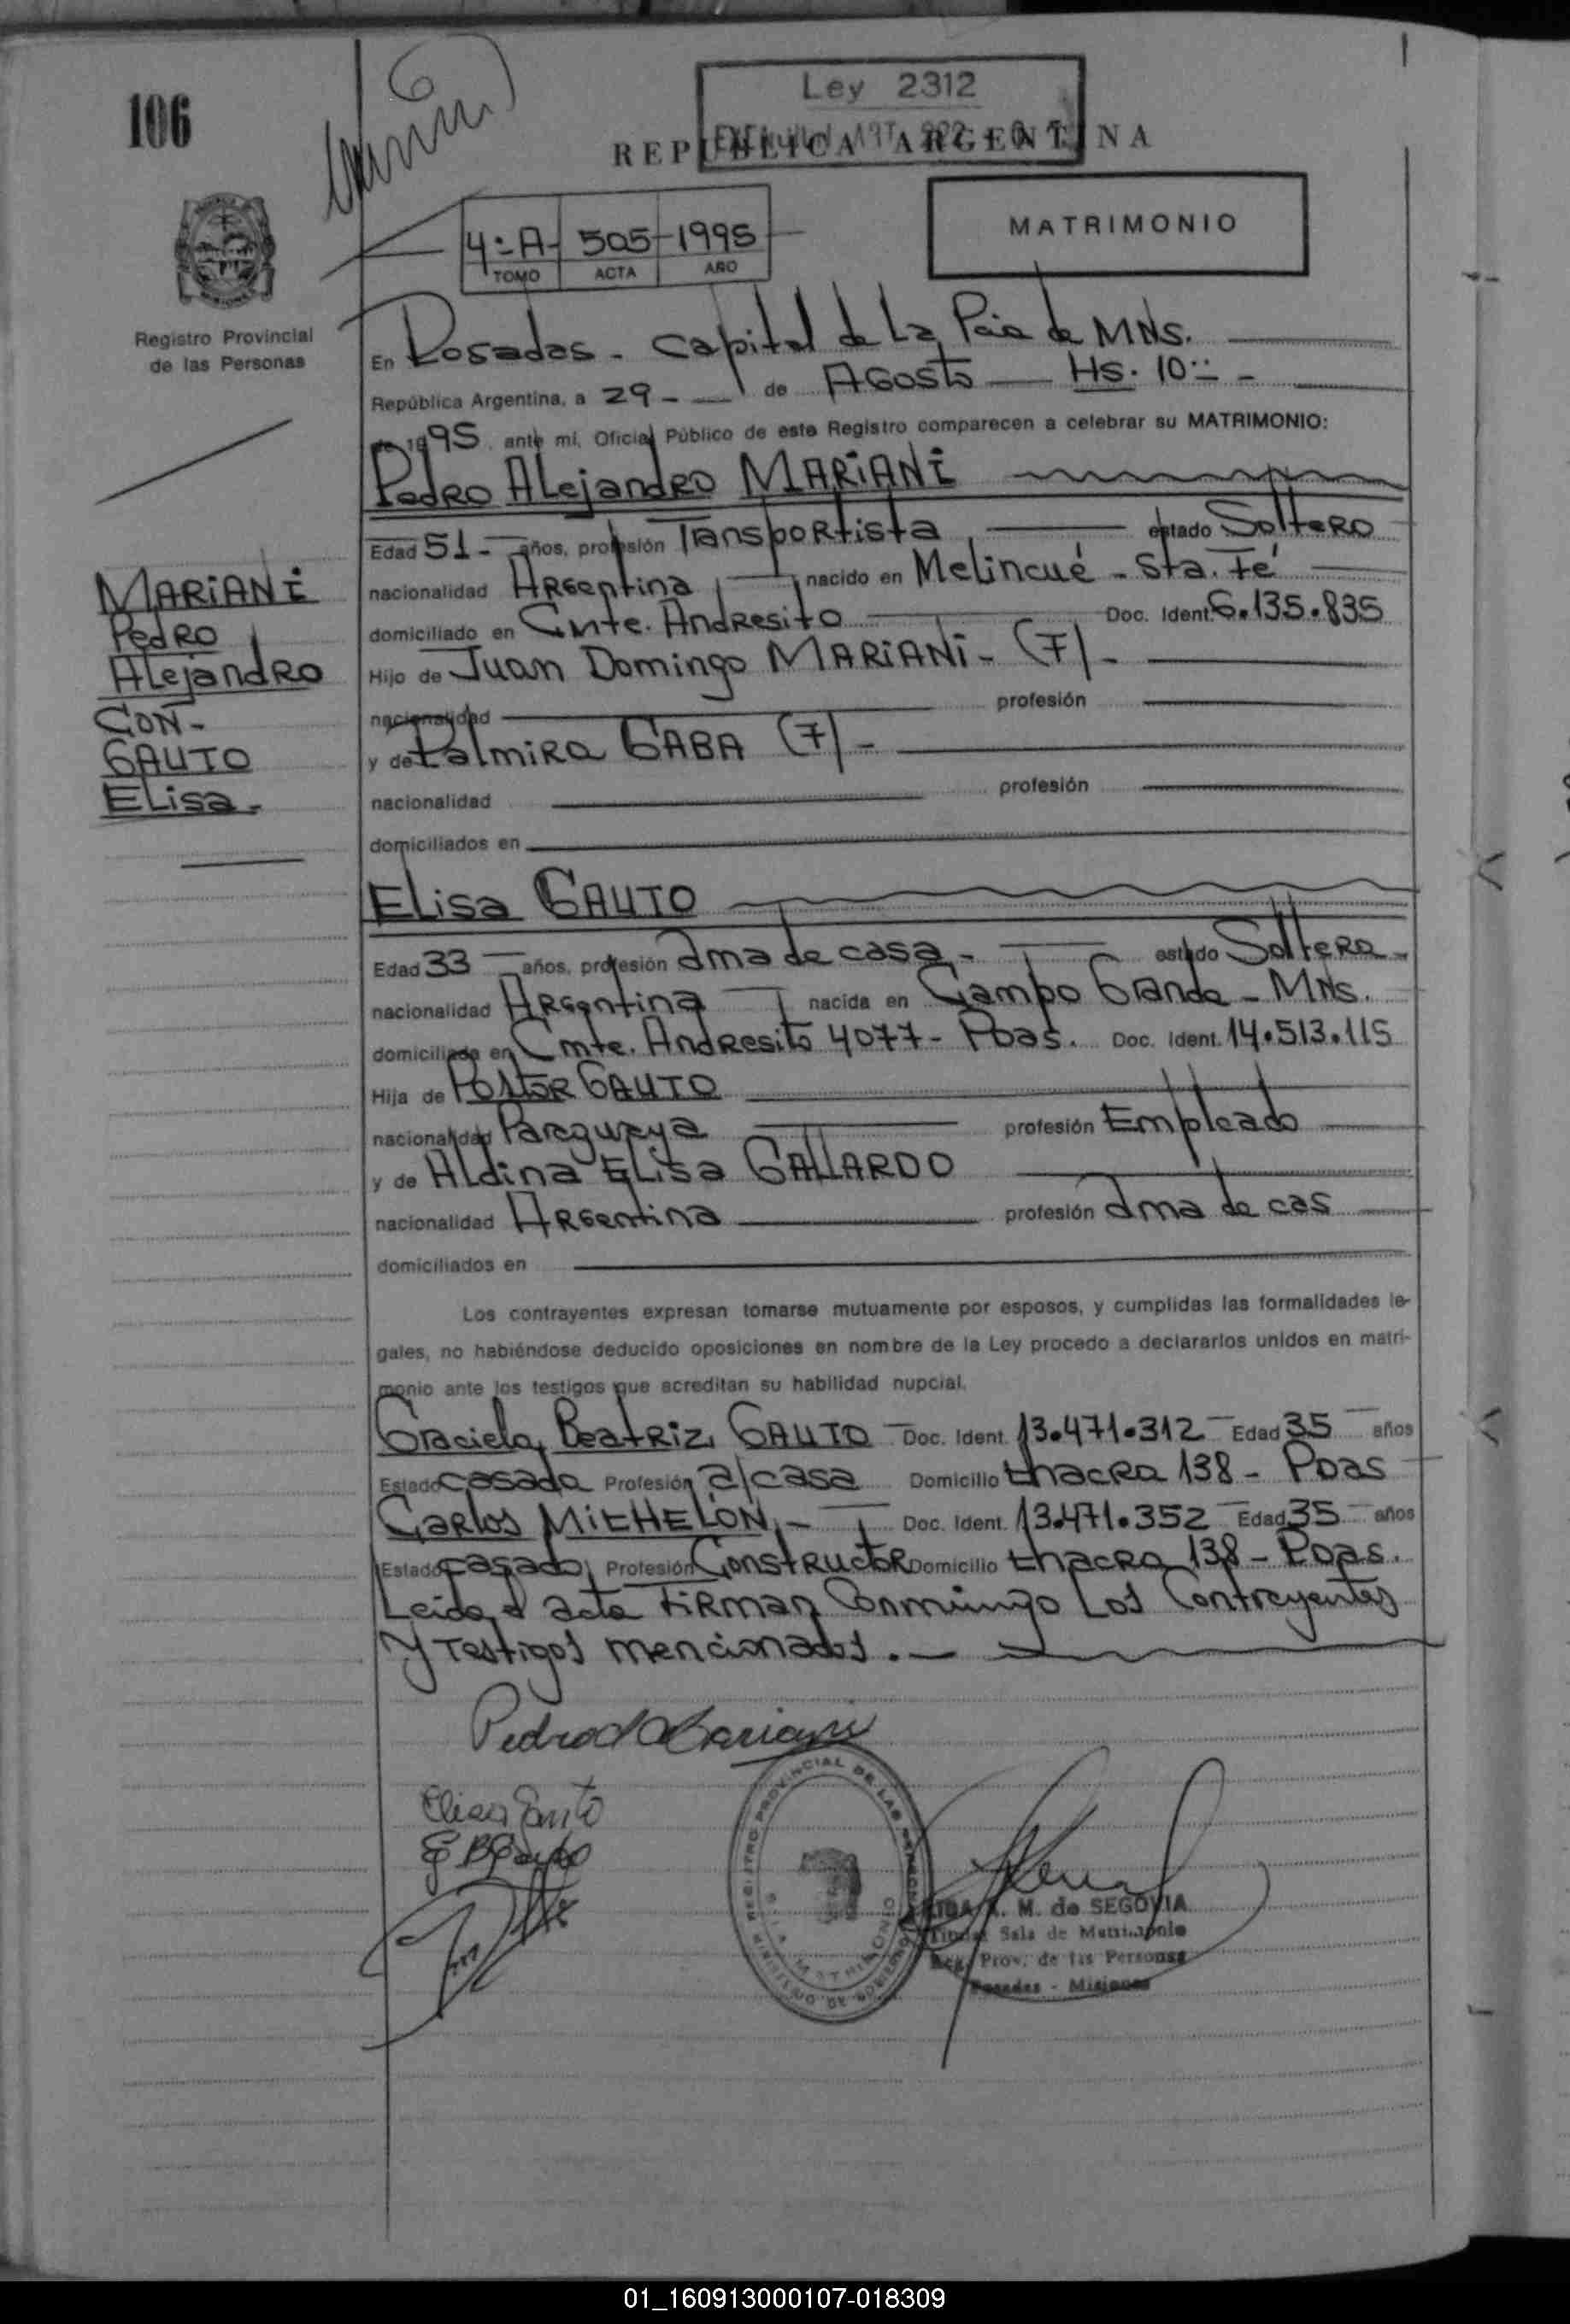 106
Ley 2312
REPUBLICA ARGENTINA
4º-A- 505-1995
TOMO ACTA AÑO
MATRIMONIO
Registro Provincial
de las Personas
En Posadas - Capital de La Pcia de MNS.
República Argentina, a 29 - de AGosto Hs. 10:: -
de 1995. ante mí, Oficial Público de este Registro comparecen a celebrar su MATRIMONIO:
Pedro Alejandro MARIANI
Edad 51 - años, profesión Transportista estado Soltero
nacionalidad Argentina nacido en Melincué - Sta. Fé
domiciliado en Cmte. Andresito Doc. Ident. 6.135.835
Hijo de Juan Domingo MARIANI - (F) -
nacionalidad profesión
y de Palmira GABA (F) -
nacionalidad profesión
domiciliados en
MARIANI
Pedro
Alejandro
CON -
GAUTO
Elisa -
Elisa GAUTO
Edad 33 años, profesión Ama de casa - estado Soltera -
nacionalidad Argentina nacida en Campo Grande - MNS.
domiciliada en Cmte. Andresito 4077 - Pdas. Doc. Ident. 14.513.115
Hija de Pastor GAUTO
nacionalidad Paraguaya profesión Empleado
y de Aldina Elisa GALLARDO
nacionalidad Argentina profesión Ama de cas
domiciliados en
Los contrayentes expresan tomarse mutuamente por esposos, y cumplidas las formalidades le-
gales, no habiéndose deducido oposiciones en nombre de la Ley procedo a declararlos unidos en matri-
monio ante los testigos que acreditan su habilidad nupcial.
Graciela Beatriz GAUTO Doc. Ident. 13.471.312 Edad 35 años
Estado casada Profesión a/casa Domicilio chacra 138 - Pdas
Carlos MICHELON - Doc. Ident. 13.471.352 Edad 35 años
Estado casado Profesión Constructor Domicilio chacra 138 - Pdas.
Leida el acta Firman Conmingo Los Contrayentes
y Testigos mencionados. -
Pedro A Mariani
Elisa Gauto
G B Gauto
REGISTRO PROVINCIAL DE LAS PERSONAS
MINISTERIO DE GOBIERNO
MATRIMONIO
M. de SEGOVIA
Titular Sala de Matrimonio
Reg. Prov. de las Personas
Posadas - Misiones
01_160913000107-018309